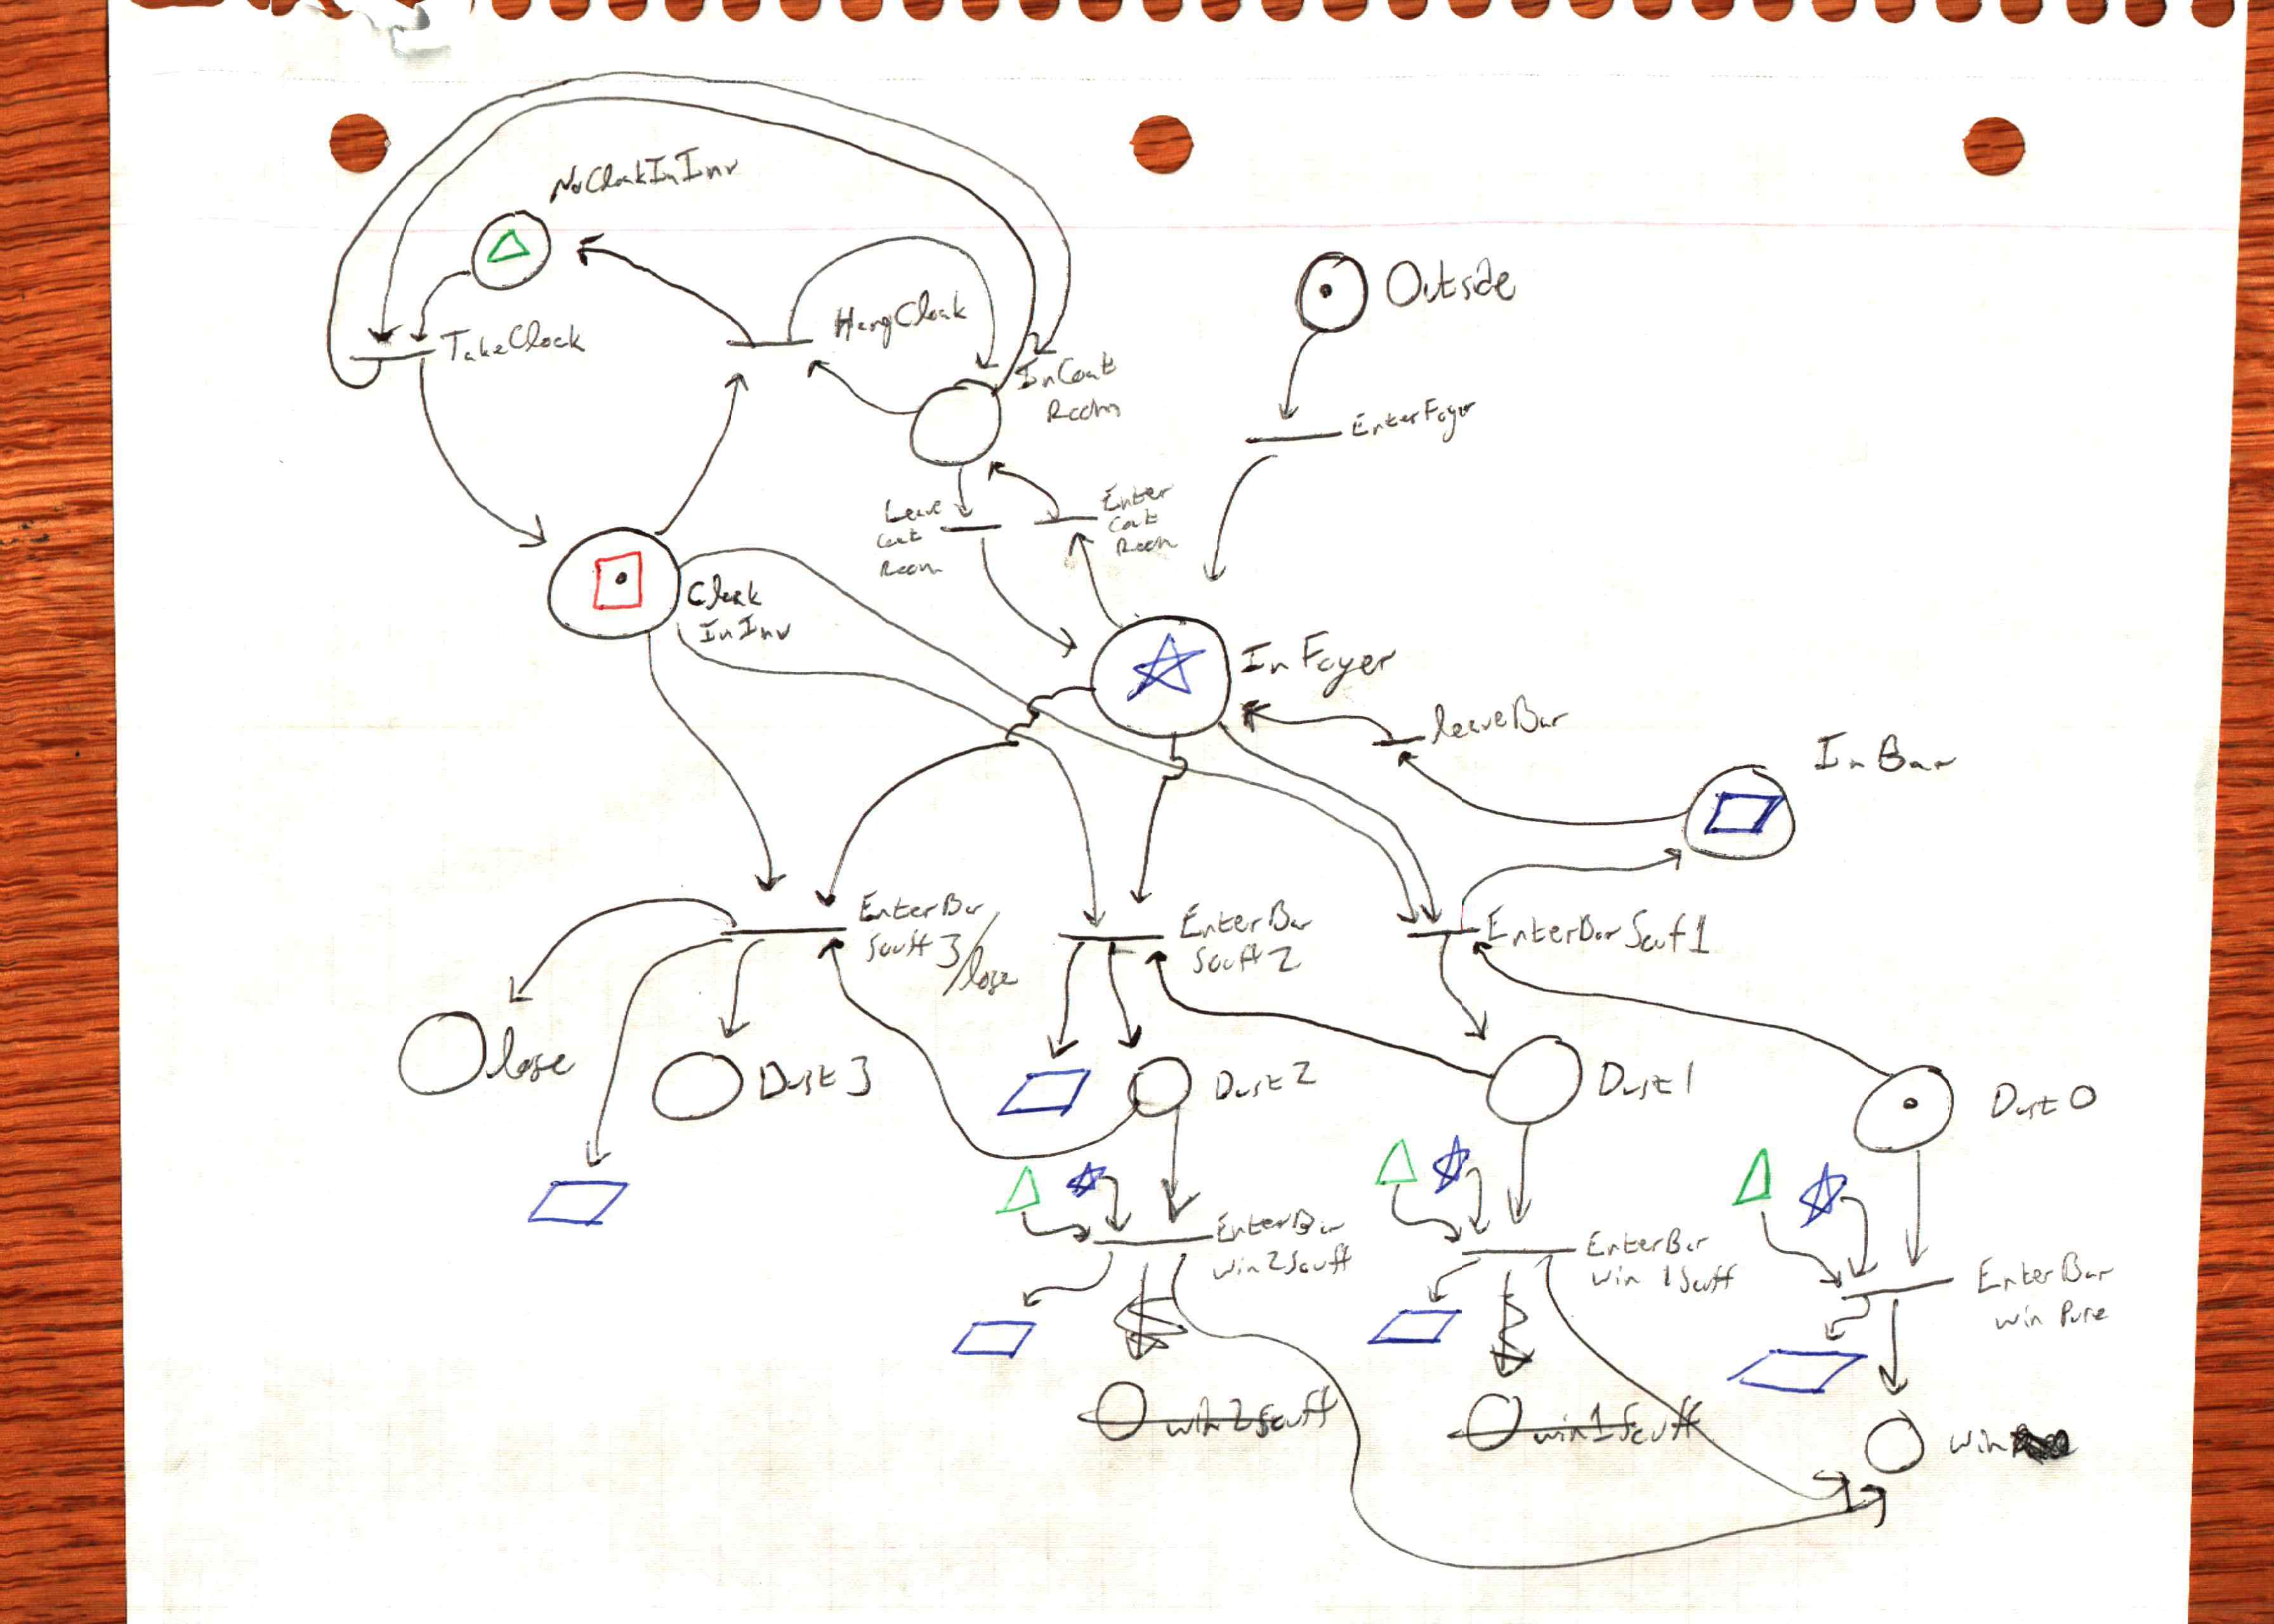 NoCloakInInv
Outside
HangCloak
TakeCloak
InCoat
Room
EnterFoyer
Leave
Coat
Room
Enter
Coat
Room
Cloak
InInv
InFoyer
leaveBar
InBar
EnterBar
Scuff 3
/lose
EnterBar
Scuff 2
EnterBarScuf1
lose
Dust 3
Dust 2
Dust 1
Dust 0
EnterBar
win 2 Scuff
EnterBar
win 1 Scuff
EnterBar
win Pure
win 2 Scuff
win 1 Scuff
win